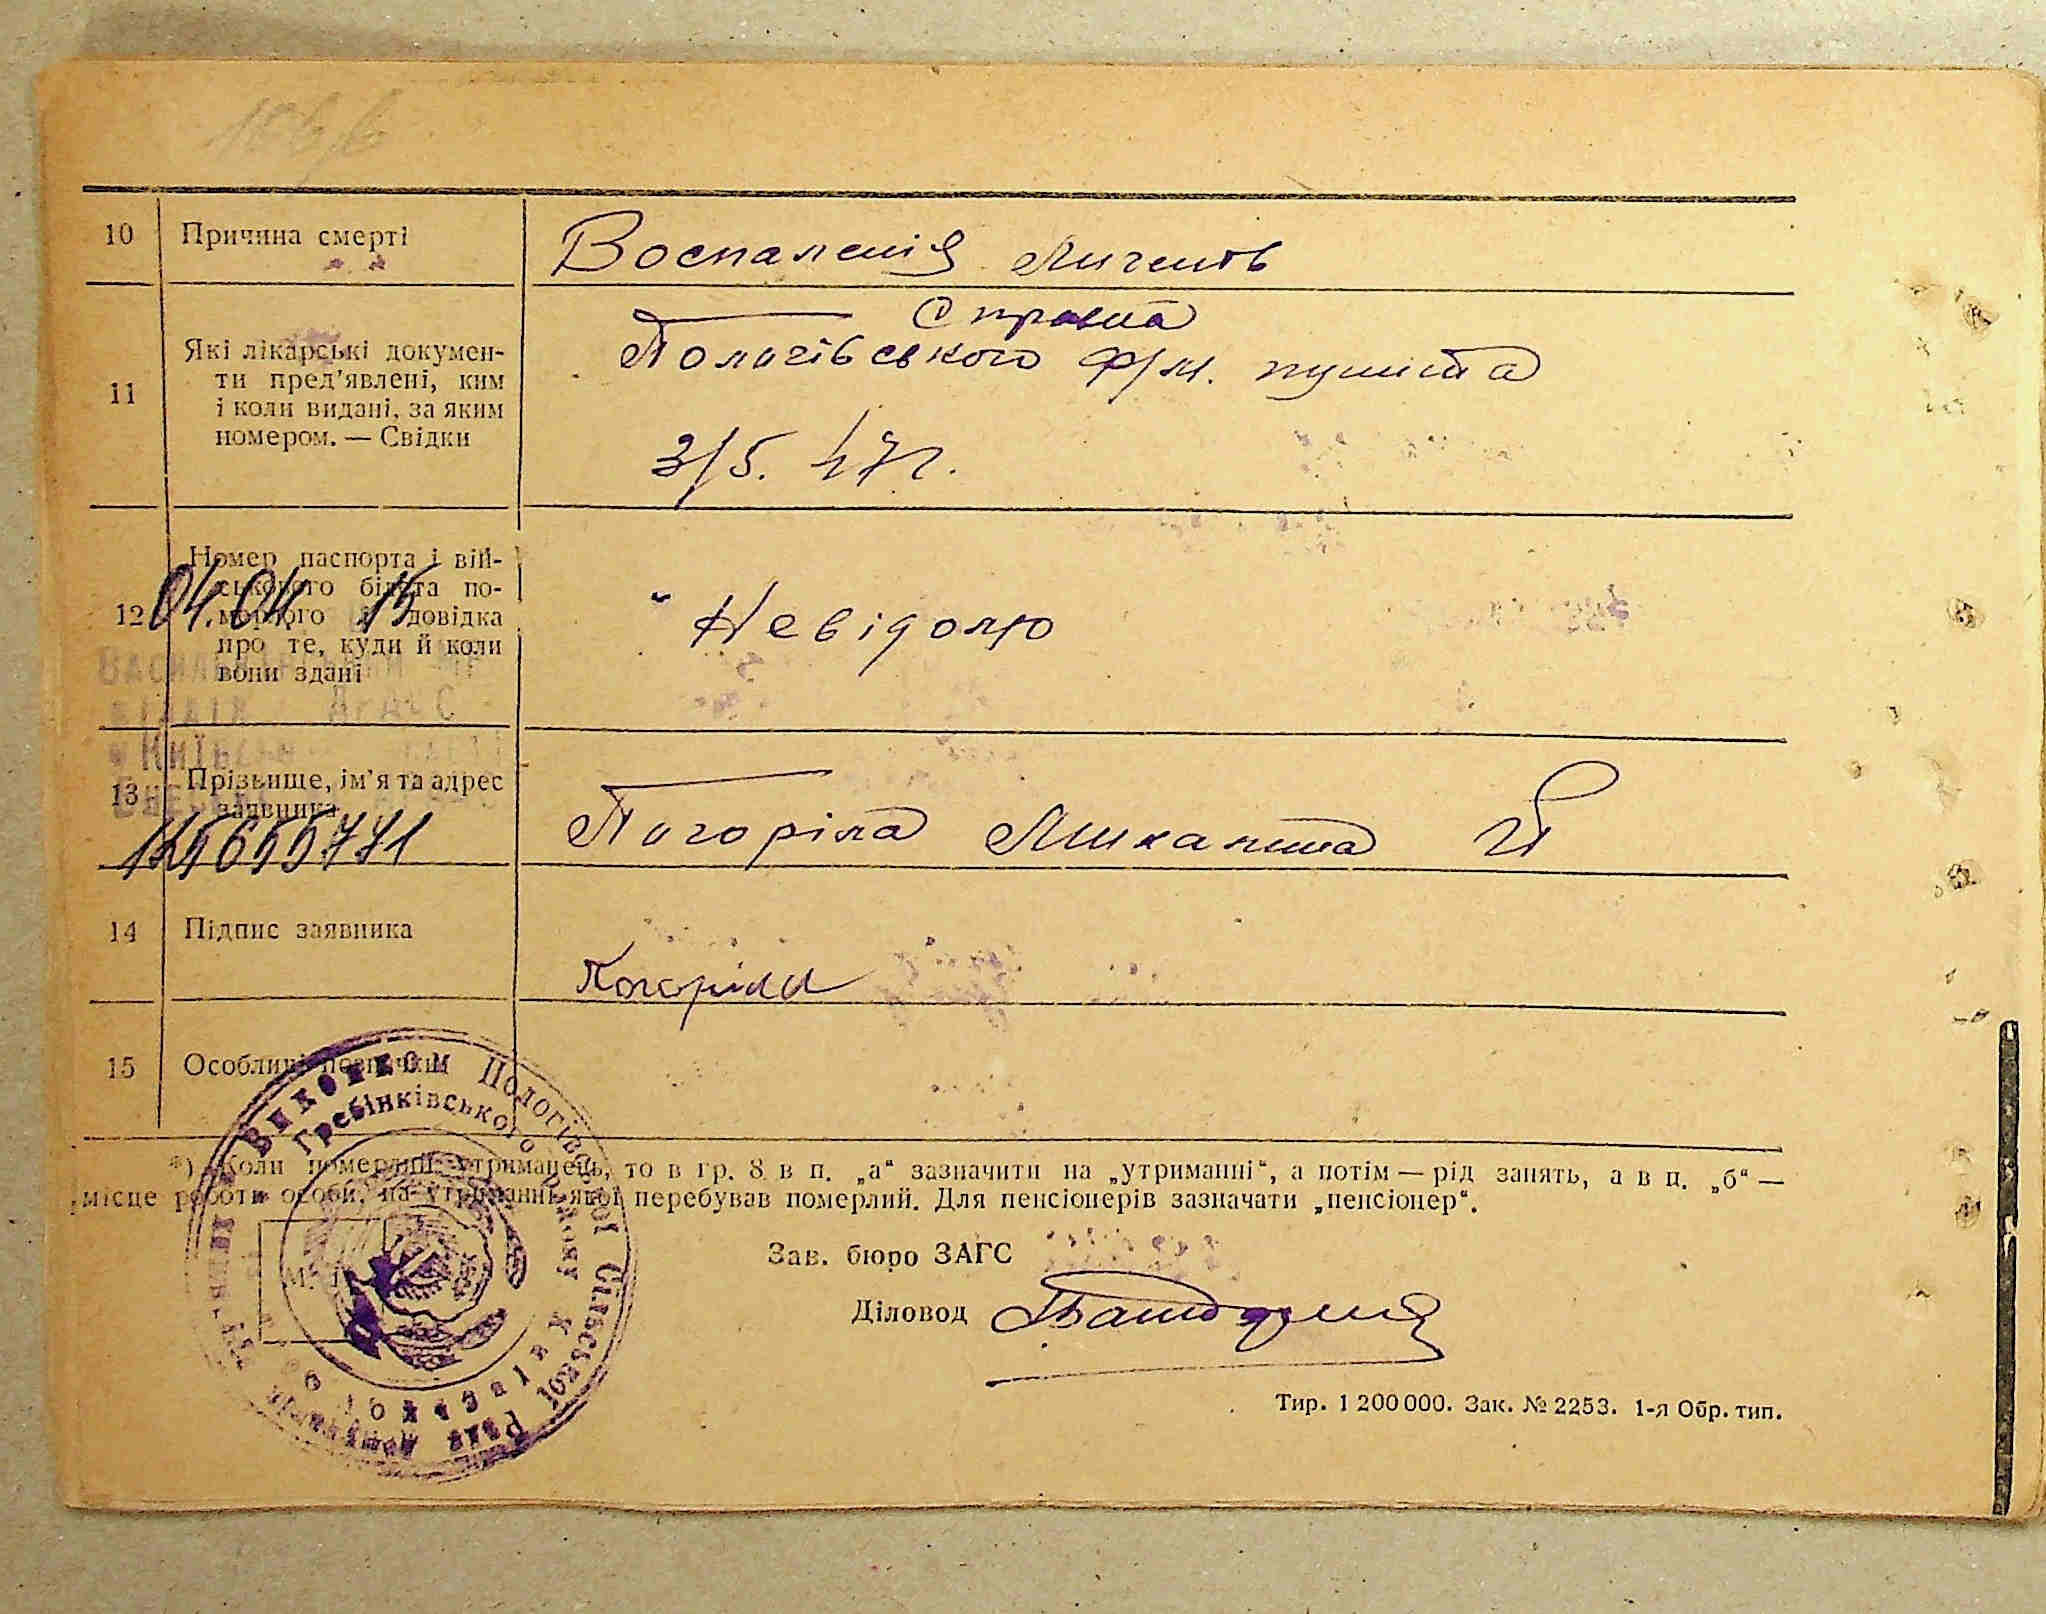 10 Причина смерті
Воспаленія Лигенів
11 Які лікарські докумен-
ти пред'явлені, ким
і коли видані, за яким
номером. — Свідки
Справка
Пологівського ф/м. пункта
3/5. 47 г.
12 Номер паспорта і вій-
ськового білета по-
мерлого й довідка
про те, куди й коли
вони здані
Невідомо
04.04 15
13 Прізвище, ім'я та адрес
заявника
Погоріла
125655771
14 Підпис заявника
Погоріла
15 Особливі позначки
*) Коли померлий утриманець, то в гр. 8 в п. „а“ зазначити на „утриманні“, а потім — рід занять, а в п. „б“ —
місце роботи особи, на утриманні якої перебував померлий. Для пенсіонерів зазначати „пенсіонер“.
Виконком Пологівської Сільської Ради
Гребінківського району Київської
М.
Зав. бюро ЗАГС
Діловод
Тир. 1 200 000. Зак. № 2253. 1-я Обр. тип.